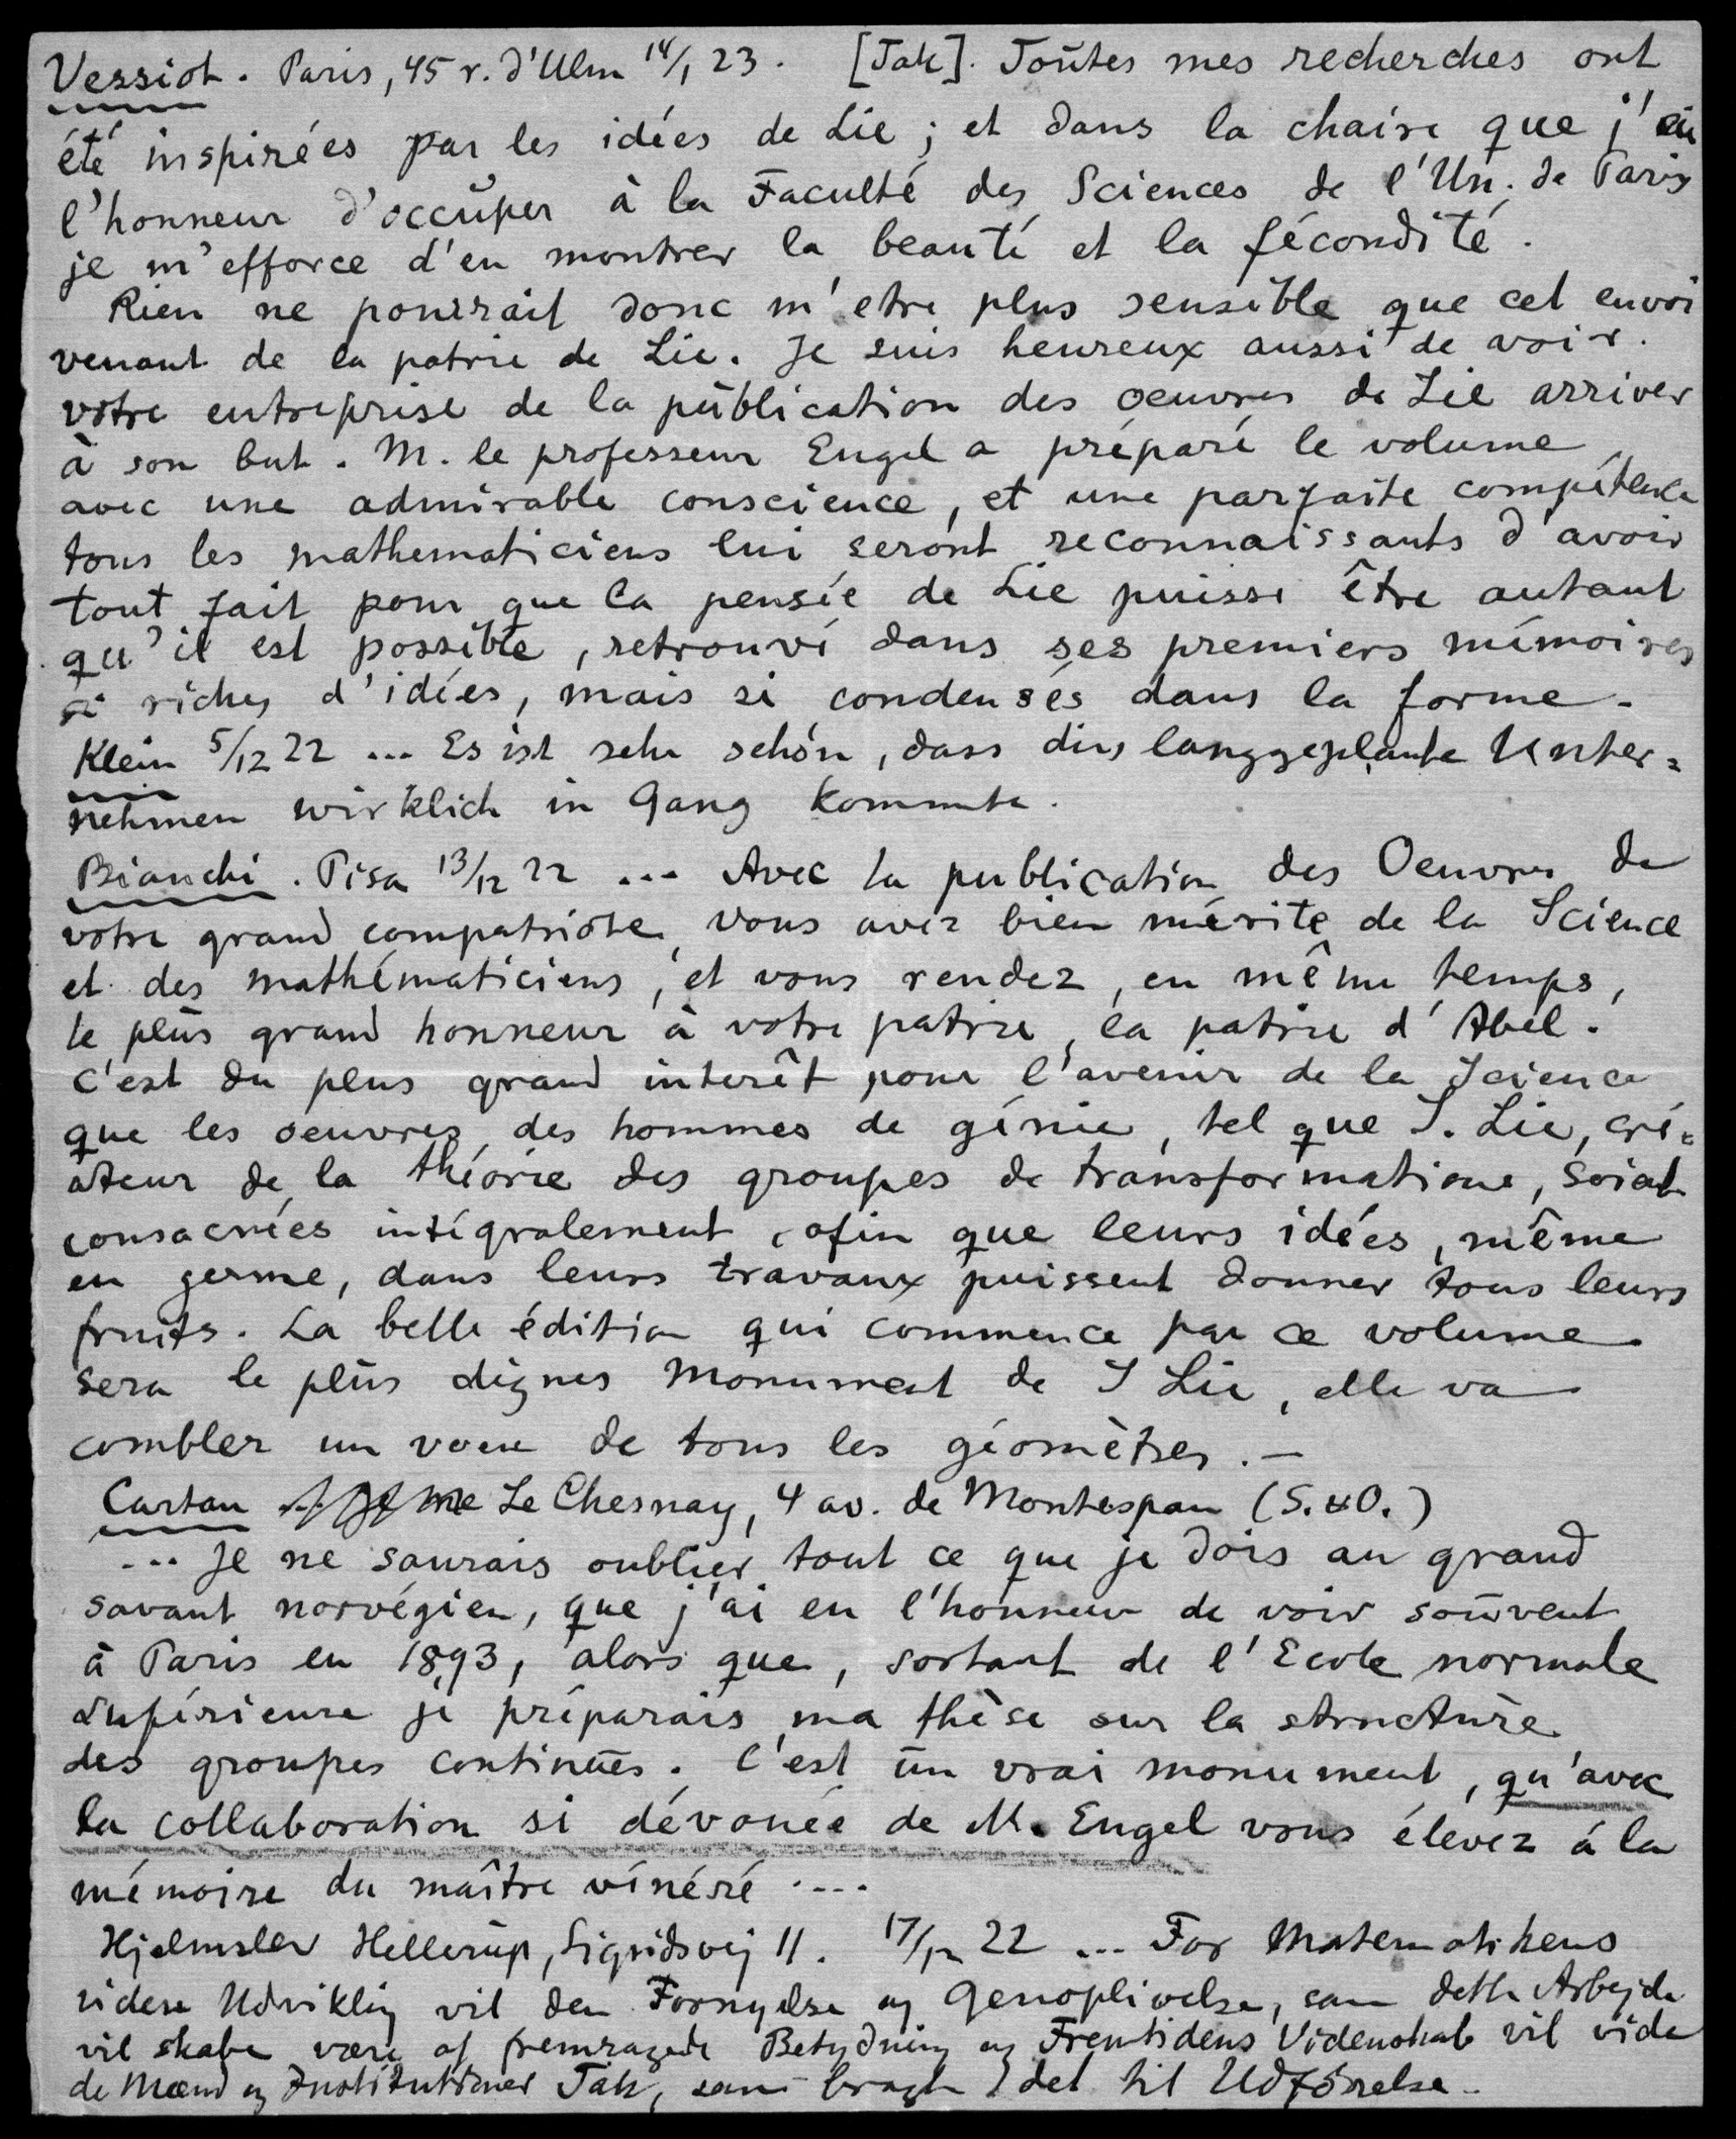 Vessiot. Paris, 45 r. d'Ulm 14/1 23. [Tak]. Toutes mes recherches ont
été inspirées par les idées de Lie; et dans la chaire que j'ai
l'honneur d'occuper à la Faculté des Sciences de l'Un. de Paris
je m'efforce d'en montrer la beauté et la fécondité.
Rien ne pourrait donc m'etre plus sensible que cet envoi
venant de la patrie de Lie. Je suis heureux aussi de voir.
votre entreprise de la publication des oeuvres de Lie arriver
à son but. M. le professeur Engel a préparé le volume
avec une admirable conscience, et une parfaite compétence
tous les mathematiciens lui seront reconnaissants d'avoir
tout fait pour que la pensée de Lie puisse être autant
qu'il est possible, retrouvé dans ses premiers mémoires
si riches d'idées, mais si condensés dans la forme.
Klein 5/12 22 ... Es ist sehr schön, dass dies langgeplante Unter=
nehmen wirklich in Gang kommte.
Bianchi. Pisa 13/12 22 ... Avec la publication des Oeuvres de
votre grand compatriote, vous avez bien mérité de la Science
et des mathématiciens, et vous rendez, en même temps,
le plus grand honneur à votre patrie, la patrie d'Abel.
C'est du plus grand interêt pour l'avenir de la Science
que les oeuvres des hommes de génie, tel que S. Lie, cré=
ateur de la théorie des groupes de transformations, soient
consacrées intégralement, afin que leurs idées, même
en germe, dans leurs travaux puissent donner tous leurs
fruits. La belle édition qui commence par ce volume
sera le plus dignes monument de S Lie, elle va
combler un voeu de tous les géomètres. —
Cartan Le Chesnay, 4 av. de Montespan (S. & O.)
... Je ne saurais oublier tout ce que je dois au grand
savant norvégien, que j'ai eu l'honneur de voir souvent
à Paris en 1893, alors que, sortant de l'Ecole normale
supérieure je préparais ma thèse sur la structure
des groupes continues. C'est un vrai monument, qu'avec
la collaboration si dévouée de M. Engel vous élevez á la
mémoire du maître vénéré ....
Hjelmslev Hellerup, Sigridsvej 11. 17/12 22 ... For Matematikens
videre Udvikling vil den Fornyelse og Genoplivelse, som dette Arbejde
vil skabe være af fremragende Betydning og Fremtidens Videnskab vil vide
de Mænd og Institutioner Tak, som bragte det til Udförelse.